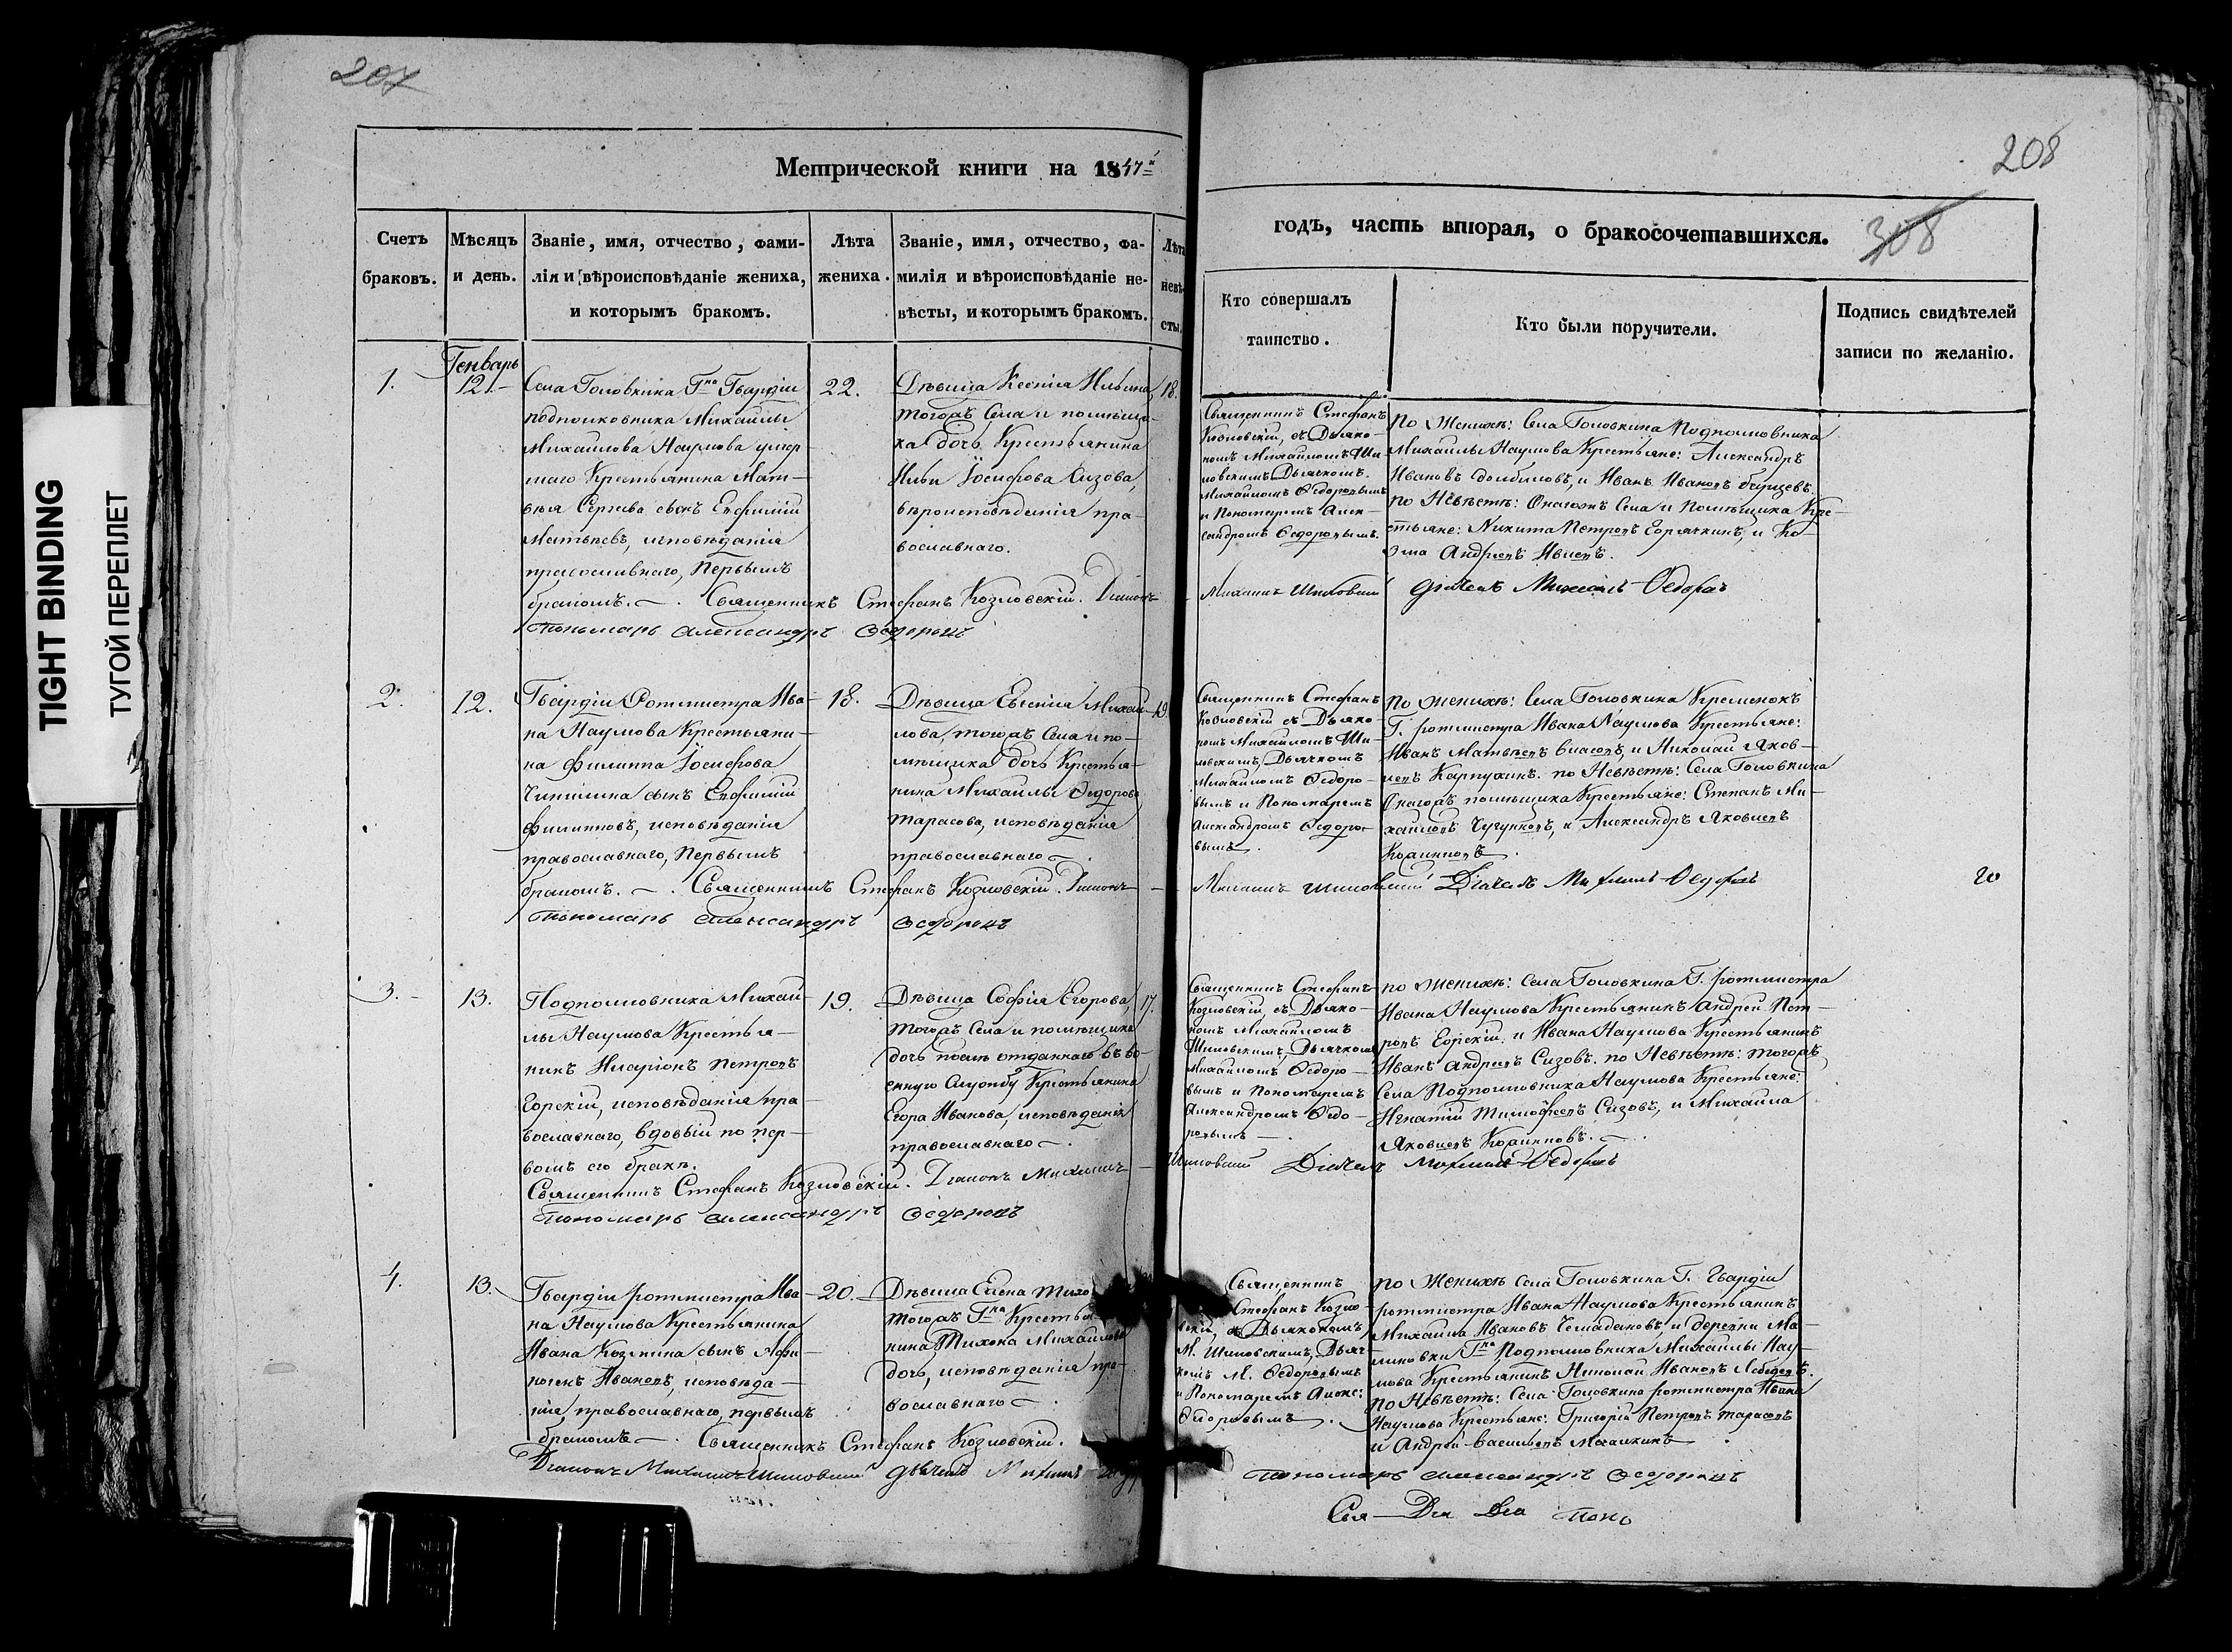 207
Метрической книги на 1847й
Счетъ браковъ.
Мѣсяцъ и день.
Званіе, имя, отчество, фами-
лія и вѣроисповѣданіе жениха,
и которымъ бракомъ.
Лѣта
жениха.
Званіе, имя, отчество, фа-
милія и вѣроисповѣданіе не-
вѣсты, и которымъ бракомъ.
Лѣта
невѣ-
сты.
1.
Генварь
12.
Села Головкина Гна Гвардіи
подполковника Михаилы
Михаилова Наумова умер
шаго Крестьянина Мат-
вѣя Сергѣева сынъ Евфимій
Матвѣевъ, исповѣданія
православнаго, Первымъ
бракомъ.
22.
Дѣвица Ксенія Ильина,
тогожъ Села и помѣщи-
ка дочь Крестьянина
Ильи Іосифова Сизова,
вѣроисповѣданія пра-
вославнаго.
18.
Священникъ Стефанъ Козловскій. Діаконъ
Пономарь Александръ Ѳедоровъ
2.
12.
Гвардіи Ротмистра Ива-
на Наумова Крестьяни-
на Филиппа Іосифова
сынъ Евфимій
Филипповъ, исповѣданія
православнаго, Первымъ
бракомъ.
18.
Дѣвица Евгенія Михаи-
лова, тогожъ Села и по-
мѣщика дочь Крестья-
нина Михаилы Ѳедорова
Тарасова, исповѣданія
православнаго
19.
Священникъ Стефанъ Козловскій. Діаконъ
Пономарь Александръ Ѳедоровъ
3.
13.
Подполковника Михаи-
лы Наумова Крестья-
нинъ Иларіонъ Петровъ
Горскій, исповѣданія пра-
вославнаго, вдовый по пер-
вомъ его бракѣ.
19.
Дѣвица Софія Егорова,
тогожъ Села и помѣщика
дочь отданнаго въ во-
енную Службу Крестьянина
Егора Иванова, исповѣданія
православнаго
17.
Священникъ Стефанъ Козловскій. Діаконъ Михаилъ
Пономарь Александръ Ѳедоровъ
4.
13.
Гвардіи ротмистра Ива-
на Наумова Крестьянина
Ивана Козмина сынъ Афи-
ногенъ Ивановъ, исповѣда-
нія православнаго, первымъ
бракомъ
20.
Дѣвица Елена Тихо
тогожъ Гна Крестья
нина Тихона Михаилова
дочь, исповѣданія пра-
вославнаго
Священникъ Стефанъ Козловскій.
Діаконъ Михаилъ Шиловскій Дьячекъ Михаилъ
208
308
годъ, часть вторая, о бракосочетавшихся.
Кто совершалъ
таинство.
Кто были поручители.
Подпись свидѣтелей
записи по желанію.
Священникъ Стефанъ
Козловскій, съ Діако-
номъ Михаиломъ Ши
ловскимъ Дьячкомъ
Михаиломъ Ѳедоровымъ
и Пономаремъ Алек-
сандромъ Ѳедоровымъ.
По Женихѣ: Села Головкина Подполковника
Михаилы Наумова Крестьяне: Александръ
Ивановъ и Иванъ Ивановъ
по Невѣстѣ: Онагожъ Села и Помѣщика Кре-
стьяне: Никита Петровъ и Ко-
зма Андреевъ
Михаилъ Шиловскій Дьячекъ Михаилъ Ѳедоровъ
Священникъ Стефанъ
Козловскій съ Діако-
номъ Михаиломъ Ши-
ловскимъ, Дьячкомъ
Михаиломъ Ѳедоро-
вымъ и Пономаремъ
Александромъ Ѳедоро-
вымъ.
По Женихѣ: Села Головкина Кременокъ
Г. ротмистра Ивана Наумова Крестьяне:
Иванъ Матвѣевъ Власовъ, и Николай Яков-
левъ Карпухинъ. по Невѣстѣ: Села Головкина
Онагожъ помѣщика Крестьяне: Степанъ Ми-
хаиловъ Чугуновъ, и Александръ Яковлевъ
Михаилъ Шиловскій Діячекъ Михаилъ Ѳедоровъ
Священникъ Стефанъ
Козловскій, съ Діако-
номъ Михаиломъ
Шиловскимъ, Дьячкомъ
Михаиломъ Ѳедоро-
вымъ и Пономаремъ
Александромъ Ѳедо-
ровымъ
по Женихѣ: Села Головкина Г. ротмистра
Ивана Наумова Крестьянинъ Андрей Пет-
ровъ Горскій. и Ивана Наумова Крестьянинъ
Иванъ Андреевъ Сизовъ. по Невѣстѣ: тогожъ
Села Подполковника Наумова Крестьяне:
Игнатій Тимофеевъ Сизовъ, и Михаила
Яковлевъ
Шиловскій Діячекъ Михаилъ Ѳедоровъ
Священникъ
Стефанъ Козло-
вскій, съ Діакономъ
М. Шиловскимъ, Дьяч-
комъ М. Ѳедоровымъ
и Пономаремъ Алекс:
Ѳедоровымъ.
По Женихѣ Села Головкина Г. Гвардіи
ротмистра Ивана Наумова Крестьянинъ
Михаила Ивановъ Чемадановъ, и деревни Ма-
линовки Гна Подполковника Михаилы Нау-
мова Крестьянинъ Николай Ивановъ Лебедевъ.
По Невѣстѣ: Села Головкина ротмистра Ивана
Наумова Крестьяне: Григорій Петровъ Тарасовъ
и Андрей Васильевъ
Пономарь Александръ Ѳедоровъ
Свя— Діа Дья Поно
TIGHT BINDING
ТУГОЙ ПЕРЕПЛЕТ